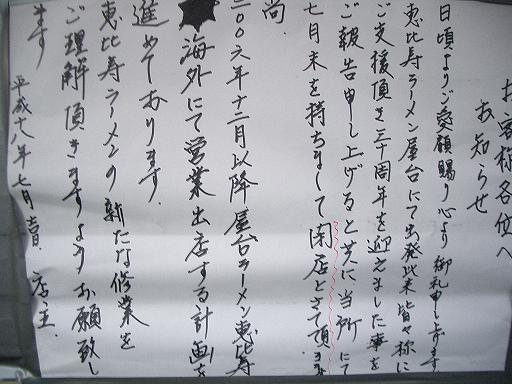 お客様各位へ
お知らせ
日頃よりご愛顧賜り心より御礼申し上げます
恵比寿ラーメン屋台にて出発以来皆々様に
ご支援頂き三十周年を迎えました事を
ご報告申し上げると共に当所にて
七月末を持ちまして閉店とさせて頂きます
尚、
二〇〇六年十二月以降屋台ラーメン恵比寿
海外にて営業出店する計画を
進めております。
恵比寿ラーメンの新たな修業を
ご理解頂きますようお願い致し
ます
平成十八年七月吉日 店主.